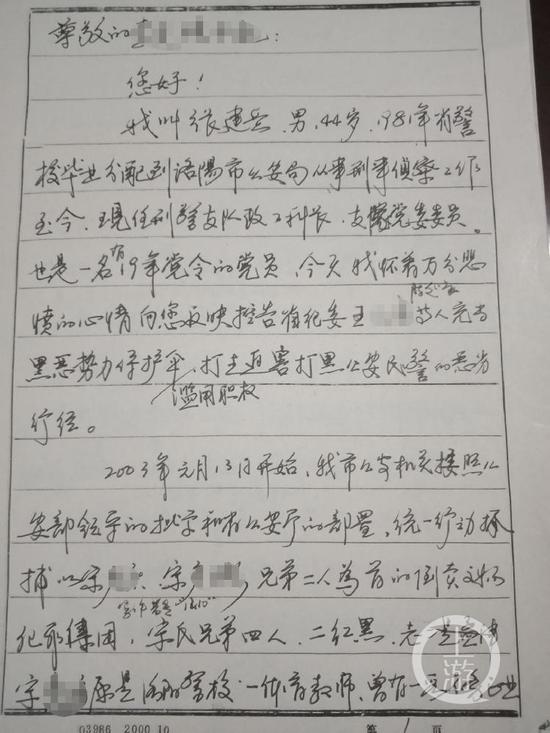 尊敬的:
您好!
我叫张建岳,男,44岁,1981年省警
校毕业分配到洛阳市公安局从事刑事侦察工作
至今,现任刑警支队政工科长,支队党委委员。
也是一名有19年党令的党员,今天我怀着万分悲
愤的心情向您反映控告省纪委王等人充当
黑恶势力保护伞,打击迫害打黑公安民警的恶劣
滥用职权
行径。
2003年元月13日开始,我市公安机关按照公
安部领导的批字和省公安厅的部署,统一行动抓
捕以宋、宋兄弟二人为首的倒卖文物
犯罪集团,宋氏兄弟四人,二红黑,老
宋原是洛阳警校一体育教师,曾有一
上游
03986 2000.10
第 1 页